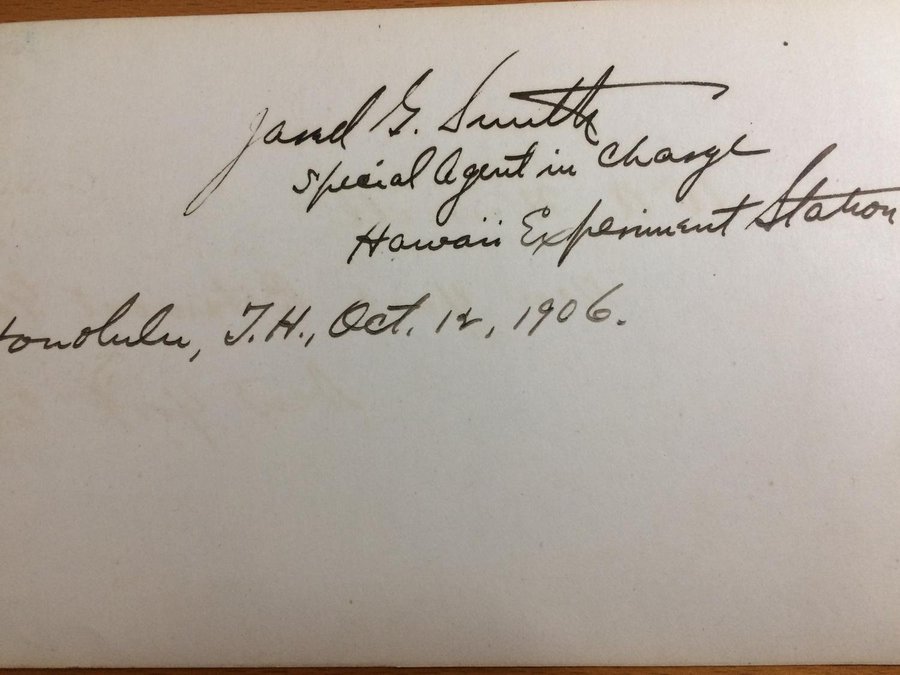 Jared G. Smith
Special Agent in Charge
Hawaii Experiment Station
Honolulu, T.H., Oct. 12, 1906.